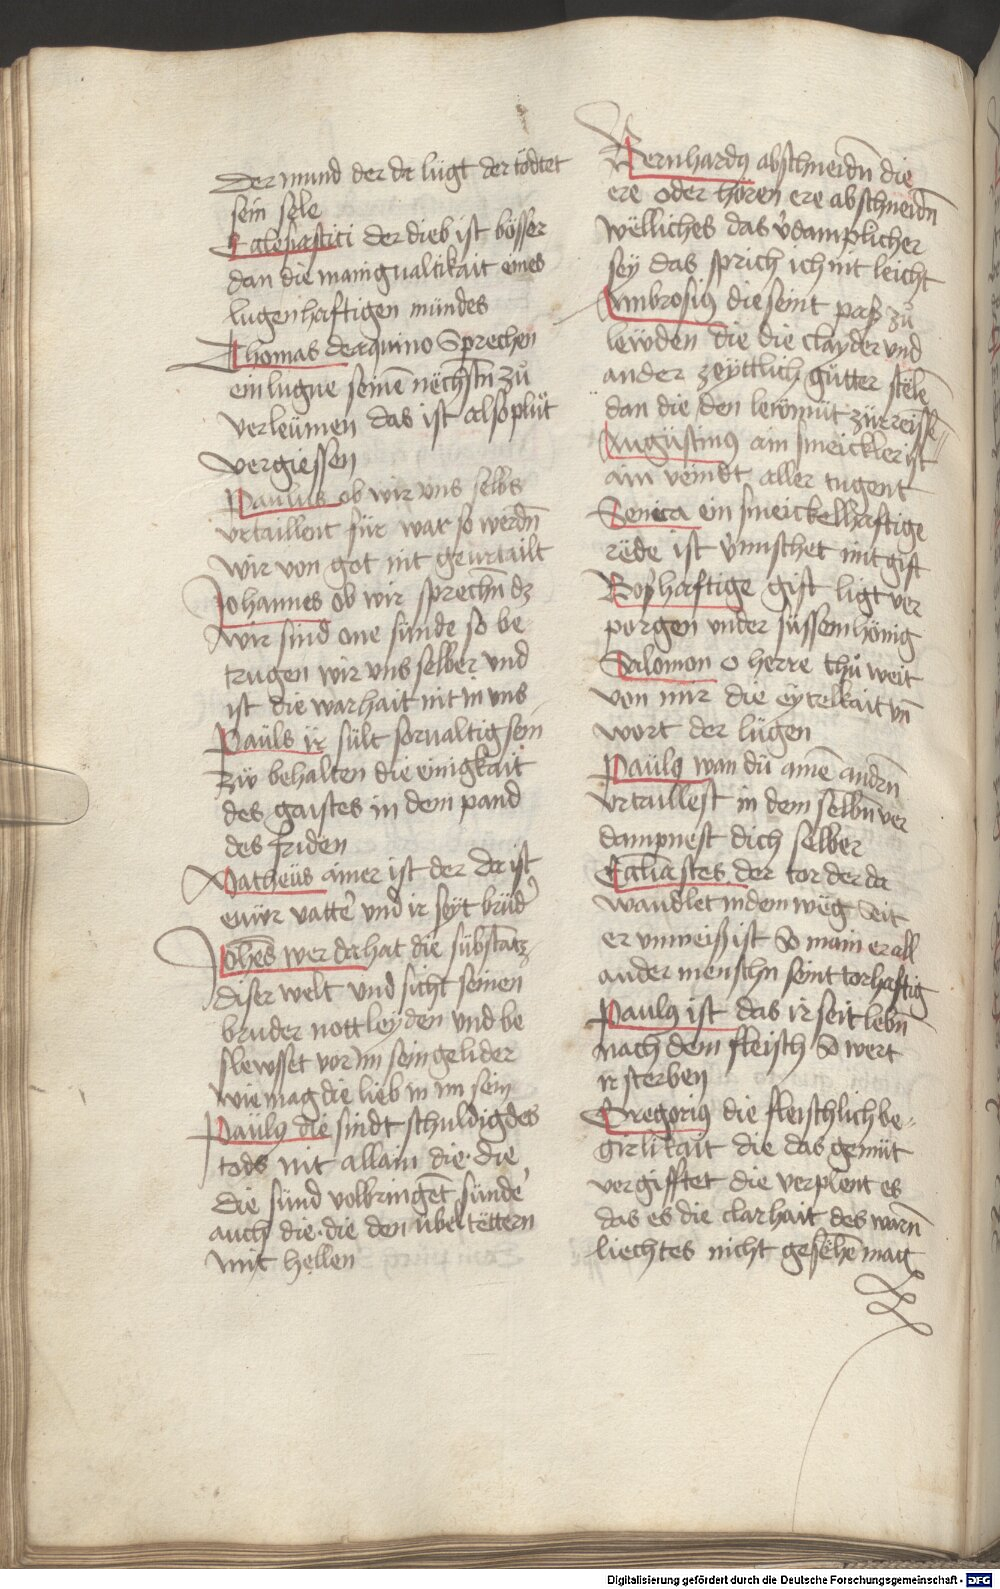 Der mund der da lügt der tödtet
sein sele
Eclesiastici der dieb ist bösser
dan die manigualtikait eines
lugenhaftigen mundes
Thomas de aquino Sprechen
ein lugne seinē nëchstn̄ zů
verleümen das ist also plůt
vergiessen
Paulus ob wir vns selbs
vrtaillent für war so werdn̄
wir von got nit geurtailt
Johannes ob wir sprechn̄ dz
wir sind one sünde so be
trugen wir vns selber vnd
ist die warhait nit in vns
Pauls ir sült soruältig sein
zů behalten die einigkait
des gaistes in dem pand
des friden
Matheüs ainer ist der da ist
eüwr vatter vnd ir seyt brüder
Joh̄es wer da hat die substātz
diser welt vnd sicht seinen
bruder nott leyden vnd be
slewsset vor im sein gelider
wie mag die lieb in im sein
Paulꝰ die sindt schuldig des
tods nit allain die · die
die sünd volbringēt sünder
auch die · die den übeltettern
mit hellen
Bernhardꝰ abschneidn̄ die
ere oder hören ere abschneidn̄
wëlliches das v̓damplicher
sey das sprich ich nit leicht
Ambrosiꝰ die seint pas zů
lewden die die claÿder vnd
ander zeyttlich gütter stëlē
dan die den lewmüt zürreissē
Augüstinꝰ ain smeickler ist
ain veindt aller tugent
Seneca ein smeickelhaftige
rëde ist v̓mischet mit gift
Boshaftige gift ligt ver
porgen vnder süssem hönig
Salomon o herre thů weit
von mir die eytelkait vn̄
wort der lügen
Paulꝰ wan dü ainē andrn̄
vrtaillest in dem selbn̄ ver
dampnest dich selber
Eccliastes der tor der da
wandlet in dem weg Seit
er vnweiß ist So main er all
ander menschn seint torhaftig
Paulꝰ ist das ir seit lebn̄
nach dem fleisch So wert
ir sterben
Gregoriꝰ die fleischlich be-
girlikait die das gemüt
vergifftet die verplent es
das es die clarhait des warn̄
liechtes nicht gesëhē mag
Digitalisierung gefördert durch die Deutsche Forschungsgemeinschaft - DFG